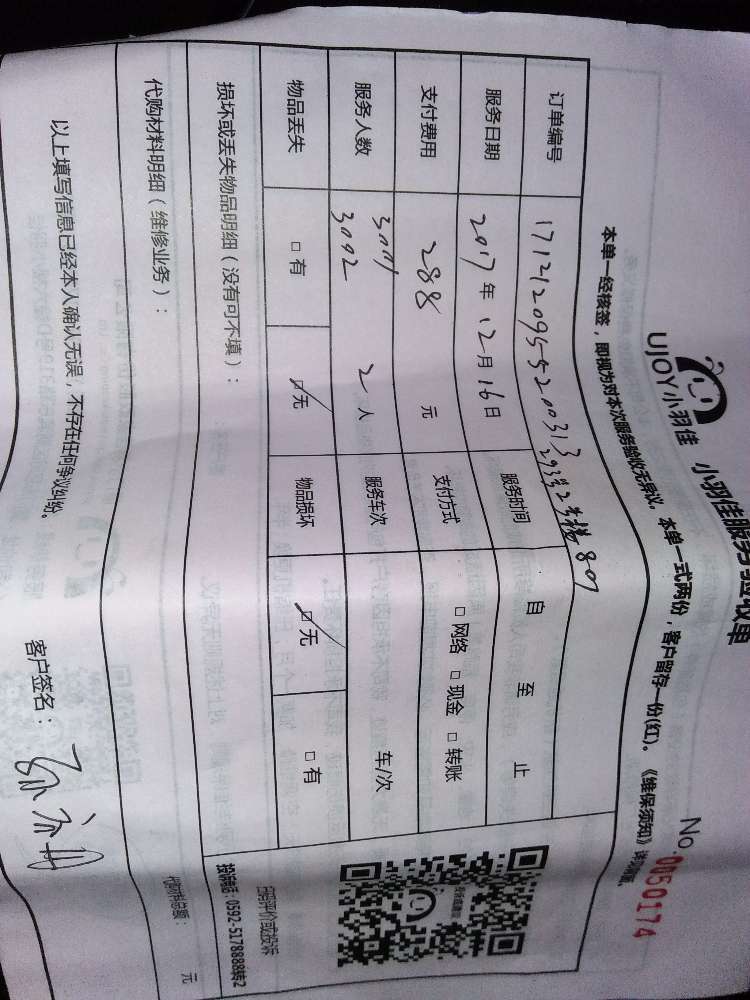 UJOY小羽佳 小羽佳服务验收单
No.0050174
本单一经核签，即视为对本次服务验收无异议。本单一式两份，客户留存一份(红)。《维保须知》
订单编号 1712120955200313 293号2号楼807
服务日期 2017年12月16日 服务时间 自 至 止
支付费用 288 元 支付方式 □网络 □现金 □转账
服务人数 3001 3002 2人 服务车次 车/次
物品丢失 □有 ☑无 物品损坏 ☑无 □有
损坏或丢失物品明细（没有可不填）：
扫码评价或投诉
投诉电话：0592-5178888转2
代购材料明细（维修业务）：
代购材料总额： 元
以上填写信息已经本人确认无误，不存在任何争议纠纷。 客户签名：